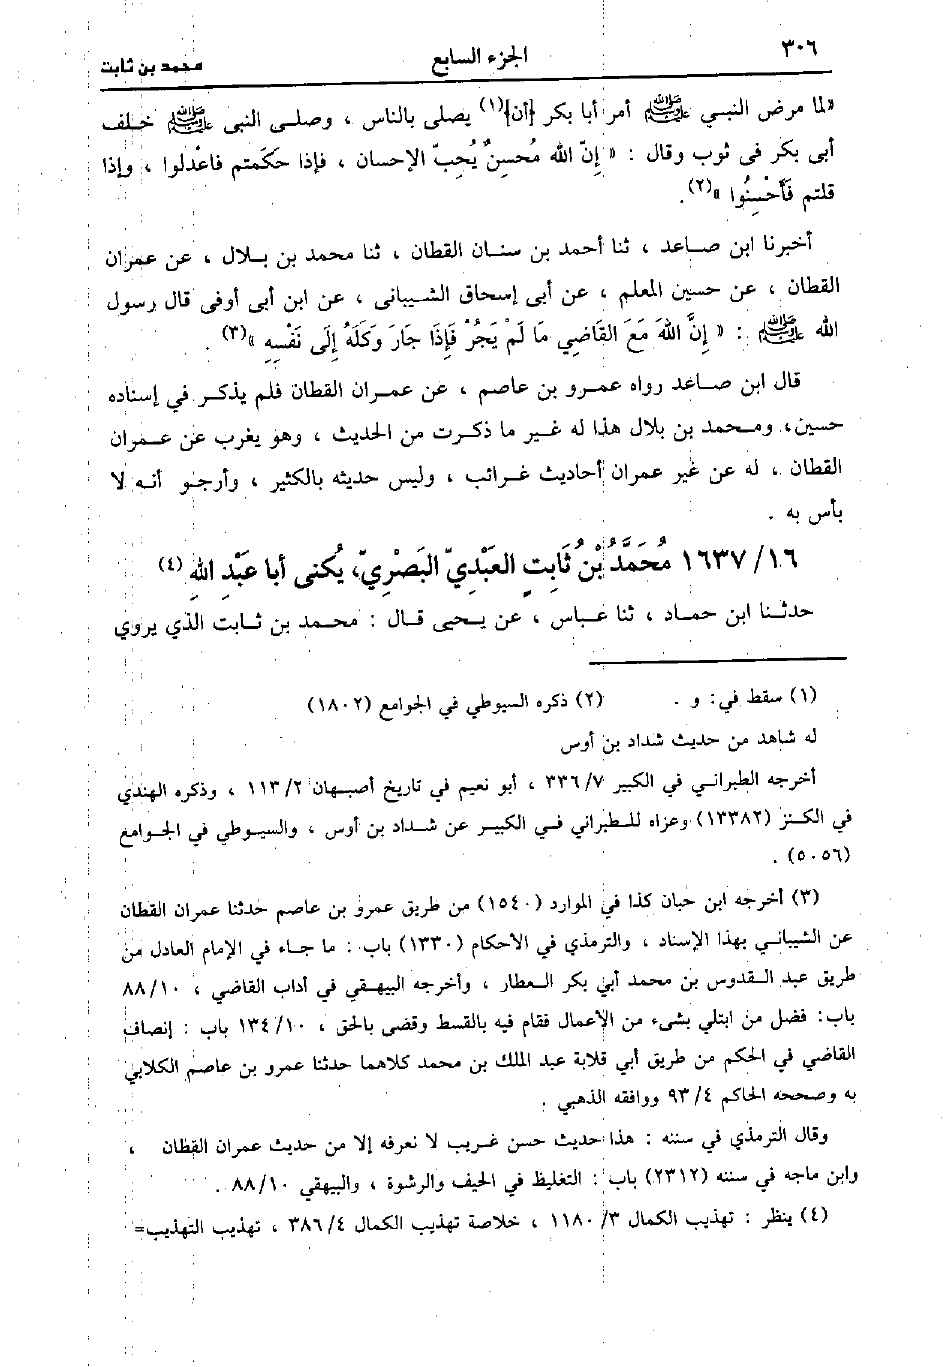 ٣٠٦
الجزء السابع
محمد بن ثابت
«لما مرض النبي ﷺ أمر أبا بكر {أن}(١) يصلى بالناس ، وصلى النبى ﷺ خلف
أبى بكر فى ثوب وقال : « إِنّ الله مُحسنٌ يُحِبّ الإحسان ، فإذا حكَمتم فاعْدلوا ، وإذا
قلتم فَأَحْسِنُوا »(٢).
أخبرنا ابن صاعد ، ثنا أحمد بن سنان القطان ، ثنا محمد بن بلال ، عن عمران
القطان ، عن حسين المعلم ، عن أبى إسحاق الشيبانى ، عن ابن أبى أوفى قال رسول
الله ﷺ : « إِنَّ اللهَ مَعَ القَاضِي مَا لَمْ يَجُرْ فَإِذَا جَارَ وَكَلَهُ إِلَى نَفْسِهِ »(٣) .
قال ابن صاعد رواه عمرو بن عاصم ، عن عمران القطان فلم يذكر في إسناده
حسين، ومحمد بن بلال هذا له غير ما ذكرت من الحديث ، وهو يغرب عن عمران
القطان ، له عن غير عمران أحاديث غرائب ، وليس حديثه بالكثير ، وأرجو أنه لا
بأس به .
١٦٣٧/١٦ مُحَمَّدُ بْنُ ثَابِتِ العَبْدِيّ البَصْرِيّ، يُكنى أبا عَبْدِ اللهِ (٤)
حدثنا ابن حماد ، ثنا عباس ، عن يحيى قال : محمد بن ثابت الذي يروي
(١) سقط في: و . (٢) ذكره السيوطي في الجوامع (١٨٠٢)
له شاهد من حديث شداد بن أوس
أخرجه الطبراني في الكبير ٣٣٦/٧ ، أبو نعيم في تاريخ أصبهان ١١٣/٢ ، وذكره الهندي
في الكنز (١٣٣٨٢) وعزاه للطبراني في الكبير عن شداد بن أوس ، والسيوطي في الجوامع
(٥٠٥٦) .
(٣) أخرجه ابن حبان كذا في الموارد (١٥٤٠) من طريق عمرو بن عاصم حدثنا عمران القطان
عن الشيباني بهذا الإسناد ، والترمذي في الأحكام (١٣٣٠) باب : ما جاء في الإمام العادل من
طريق عبد القدوس بن محمد أبي بكر العطار ، وأخرجه البيهقي في أداب القاضي ، ٨٨/١٠
باب: فضل من ابتلي بشىء من الأعمال فقام فيه بالقسط وقضى بالحق ، ١٣٤/١٠ باب : إنصاف
القاضي في الحكم من طريق أبي قلابة عبد الملك بن محمد كلاهما حدثنا عمرو بن عاصم الكلابي
به وصححه الحاكم ٩٣/٤ ووافقه الذهبي .
وقال الترمذي في سننه : هذا حديث حسن غريب لا نعرفه إلا من حديث عمران القظان ،
وابن ماجه في سننه (٢٣١٢) باب : التغليظ في الحيف والرشوة ، والبيهقي ٨٨/١٠ .
(٤) ينظر : تهذيب الكمال ١١٨٠/٣ ، خلاصة تهذيب الكمال ٣٨٦/٤ ، تهذيب التهذيب=